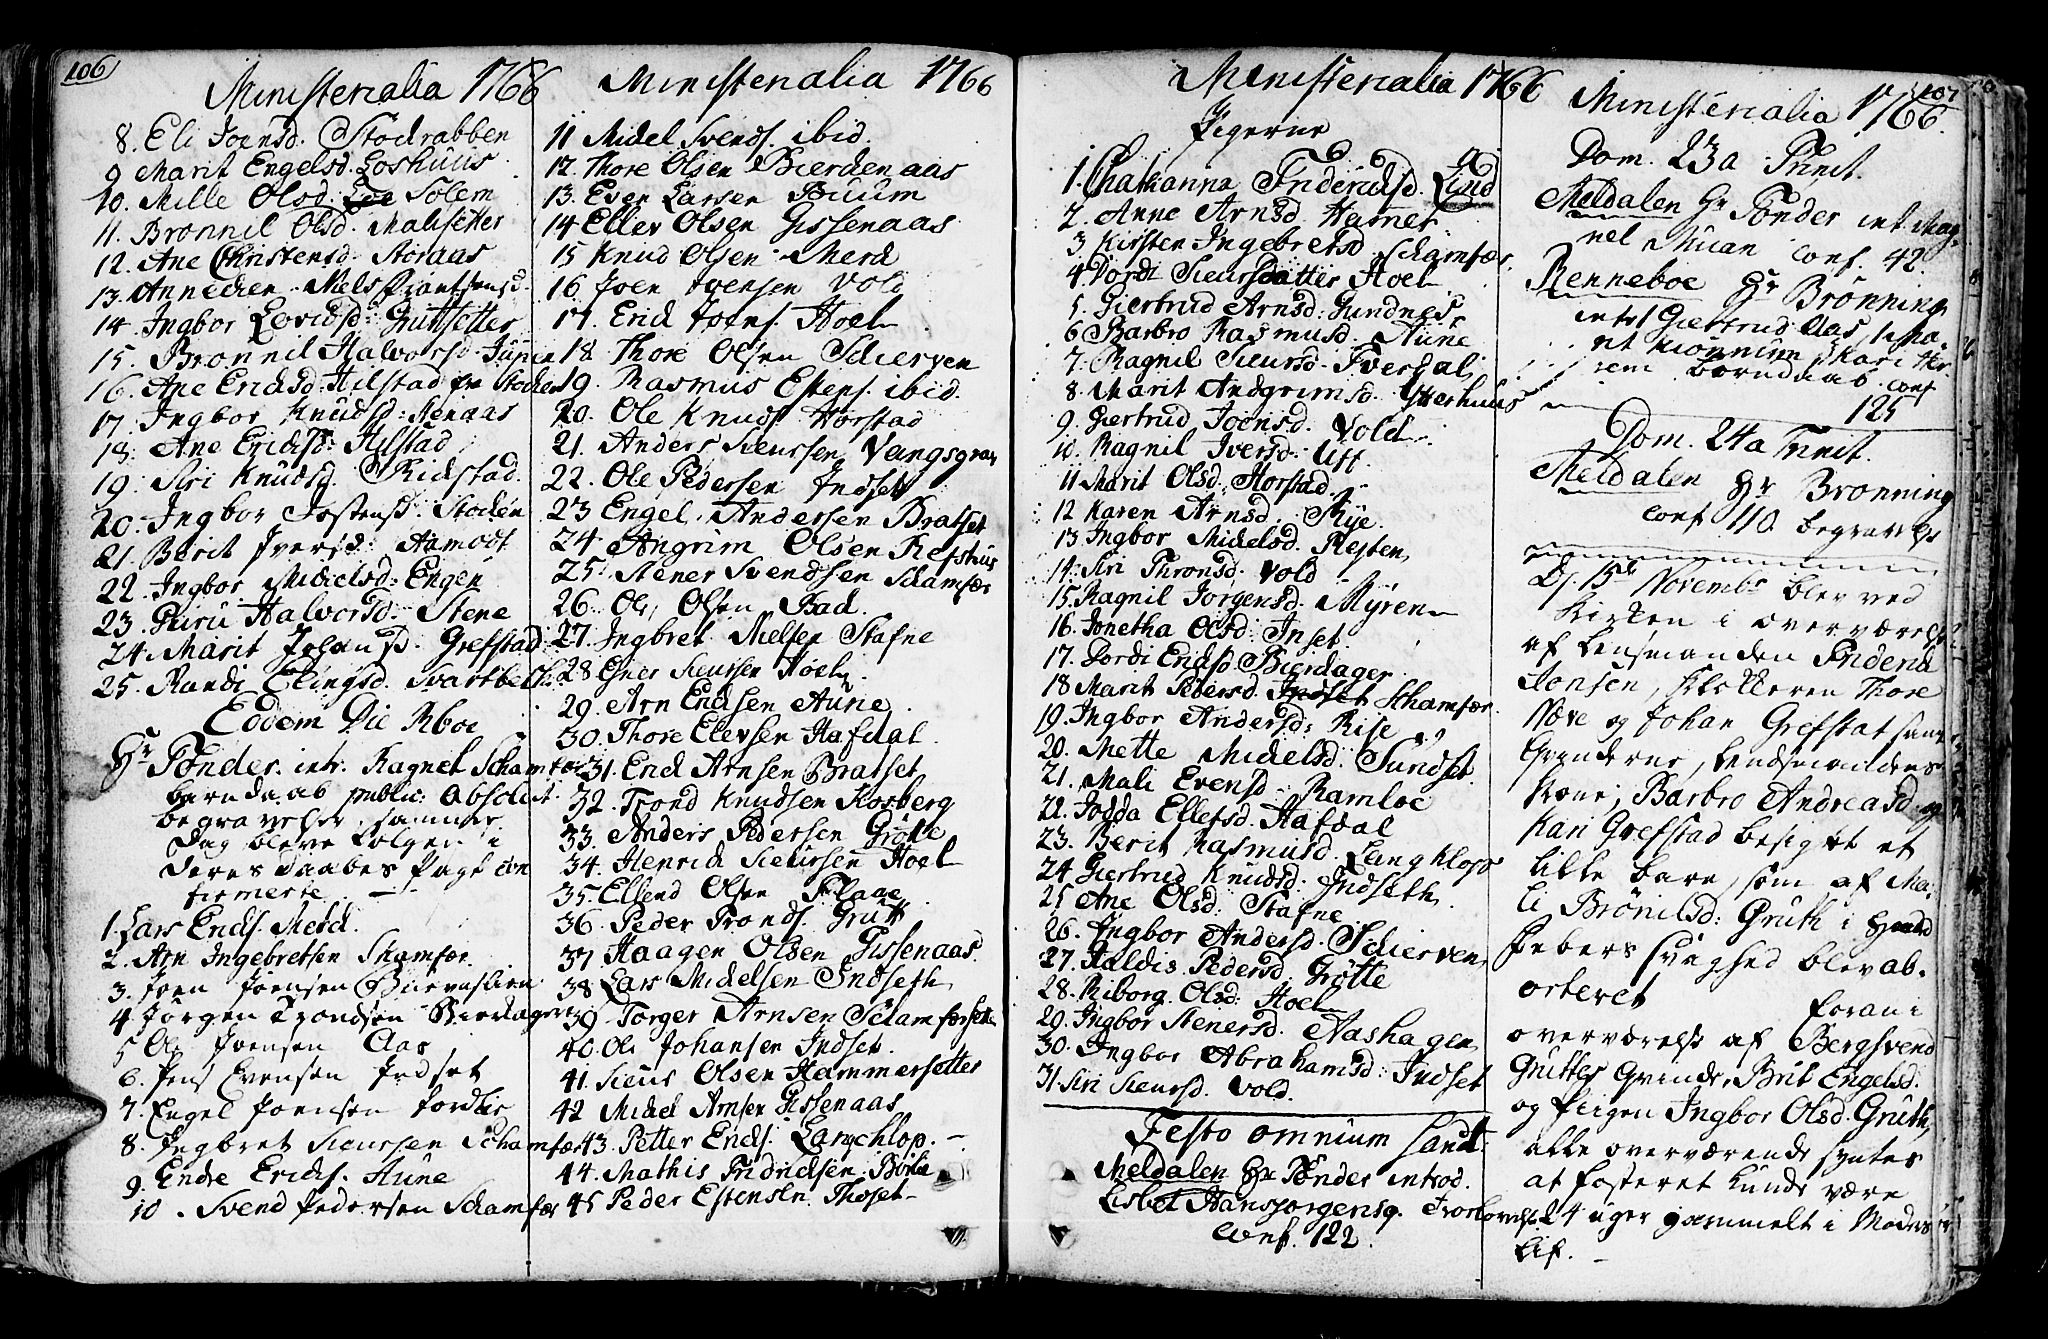 106
Ministerialia 1766
8. Eli Joensd. Stockrabben
9 Marit Engelsd. Loshuus
10. Mille Olsd. Solem
11. Brønnil Olsd. Malisetter
12. Ane Christensd. Storaas
13. Annechen Niels
14. Ingbor Lovidsd: Grutsetter
15. Brønnil Halvorsd.
16. Ane Ericksd. Hilstad fra Stochen
17. Ingbor Knudsd: Stenaas
18. Ane Ericksd: Hilstad
19. Siri Knudsd. Rickstad.
20. Ingbor Jostensd: Stochen
21. Berit Iversd: Aamodt
22. Ingbor Mickelsd: Engen
23. Guru Halvorsd: Stene
24. Marit Johansd. Grefstad
25. Randi Elingsd. Svartbech
Eodem Die Rboe
Hr Tønder. intr. Ragnel Schamfær
barnedaab public: Absolut.
begravelser. samme
Dag bleve følgen. i
deres daabes Pagt con
firmerte.
1. Lars Ericks. Merck.
2. Arn Ingebretsen Skamfær.
3. Joen Joensen
4 Jørgen Trondsen Bierdager
5 Ole Joensen Aas
6. Jens Evensen Indset
7. Engel Joensen
8. Ingbret Siursen Schamfær
9. Endre Ericks. Aune
10. Svend Pedersen Schamfær
Ministerialia 1766
11 Mickel Svends. ibid.
12. Thore Olsen Bierdenaas
13. Even Larsen Buum
14 Ellev Olsen Gissenaas
15 Knud Olsen Merck
16 Joen Iversen Vold
17. Erick Joens. Hoel
18 Thore Olsen Schierven
19. Rasmus Estens. ibid.
20. Ole Knuds Horstad
21. Anders Siurssen Vangsgrav
22. Ole Pedersen Indset
23 Engel Andersen Bratset
24 Angrim Olsen Refshus
25. Stener Svendsen Schamfær
26. Ole Olsen Bach.
27. Ingbret Nielsen Stafne
28 Siursen Hoel
29. Arn Ericksen Aune
30. Thore Ellevsen Hafdal.
31. Erick Arnsen Bratset
32. Trond Knudsen Kosberg
33. Anders Pedersen Grøtte
34. Henrick Siursen Hoel
35. Ellend Olsen Flaae
36 Peder Tronds. Grutt
37 Haagen Olsen Gissenaas.
38 Lars Mickelsen Indseth
39 Torger Arnsen Schamfærsetter
40. Ole Johansen Indset.
41. Siur Olsen Hammersetter
42 Mickel Arnsen Gissenaas
43. Petter Ericks. Langchlop.
44. Mathis Fridricksen
45 Peder Estensen Thoset
Ministerialia 1766
Pigerne
1. Chatharina Friderichsd. Lind
2. Anne Arnsd. Hamer
3 Kirsten Ingebretsd Schamfær.
4 Dordi Siursdatter Hoel
5. Giertrud Arnsd: Gundnes
6 Barbro Rasmusd. Aune
7. Ragnil Siursd. Fverdal
8. Marit Andgrimsd. Ytterhuus
9. Giertrud Joensd. Vold
10. Ragnil Iversd. Uff.
11 Marit Olsd. Horstad.
12 Karen Arnsd. Rye.
13 Ingbor Mickelsd. Resten
14. Siri Thronsd. Vold
15. Ragnil Jørgensd. Myren
16. Jonetha Olsd: Inset
17. Dordi Ericksd Bierdager
18 Marit Pedersd. Indset Schamfær.
19. Ingbor Andersd: Rise
20. Mette Mickelsd. Sundset
21. Mali Evensd: Ramloe
22. Jodda Ellefsd. Hafdal
23. Berit Rasmusd. Langklop
24 Giertrud Knudsd: Indseth
25 Ane Olsd: Stafne
26. Ingbor Andersd. Schierven
27. Haldis Pedersd. Grøtte
28. Riborg Olsd: Hoel
29. Ingbor Stenersd. Aashagen
30. Ingbor Abrahamsd: Indset
31. Siri Siursd. Vold.
Festo omnium Sanct.
Meldalen Hr Tønder introd.
Lisbet Hansjørgensg. Troelovelse
Conf. 122.
107
Ministerialia 1766.
Dom. 23a Trinit.
Meldalen Hr Tønder int. Mag-
nel Muan Conf. 42.
Renneboe Hr Brønning
intr Giertrud Aas,
Kari
barnedaab conf
125
Dom. 24a Trinit.
Meldalen Hr Brønning
Conf 110. begravelse
D. 15de Novembr blev ved
Kirken i overværelse
af Lensmanden Friderick
Jonsen, Klokkeren Thore
Næve og Johan Grefstat samt
Qvinderne, Lendsmandens
Kone, Barbro Andreasd. og
Kari Grefstad besigtet et
lidte barn, som af Ma-
li Brønilsd: Grutt i
Febers svaghed blev ab-
orteret foran i
overværelse af Bergsvend
Gruttes Qvinde, Brit Engelsd.
og Pigen Ingbor Olsd. Grutt,
alle overværende syntes
at fosteret kunde være
24 uger gammelt i Moders
Lif.